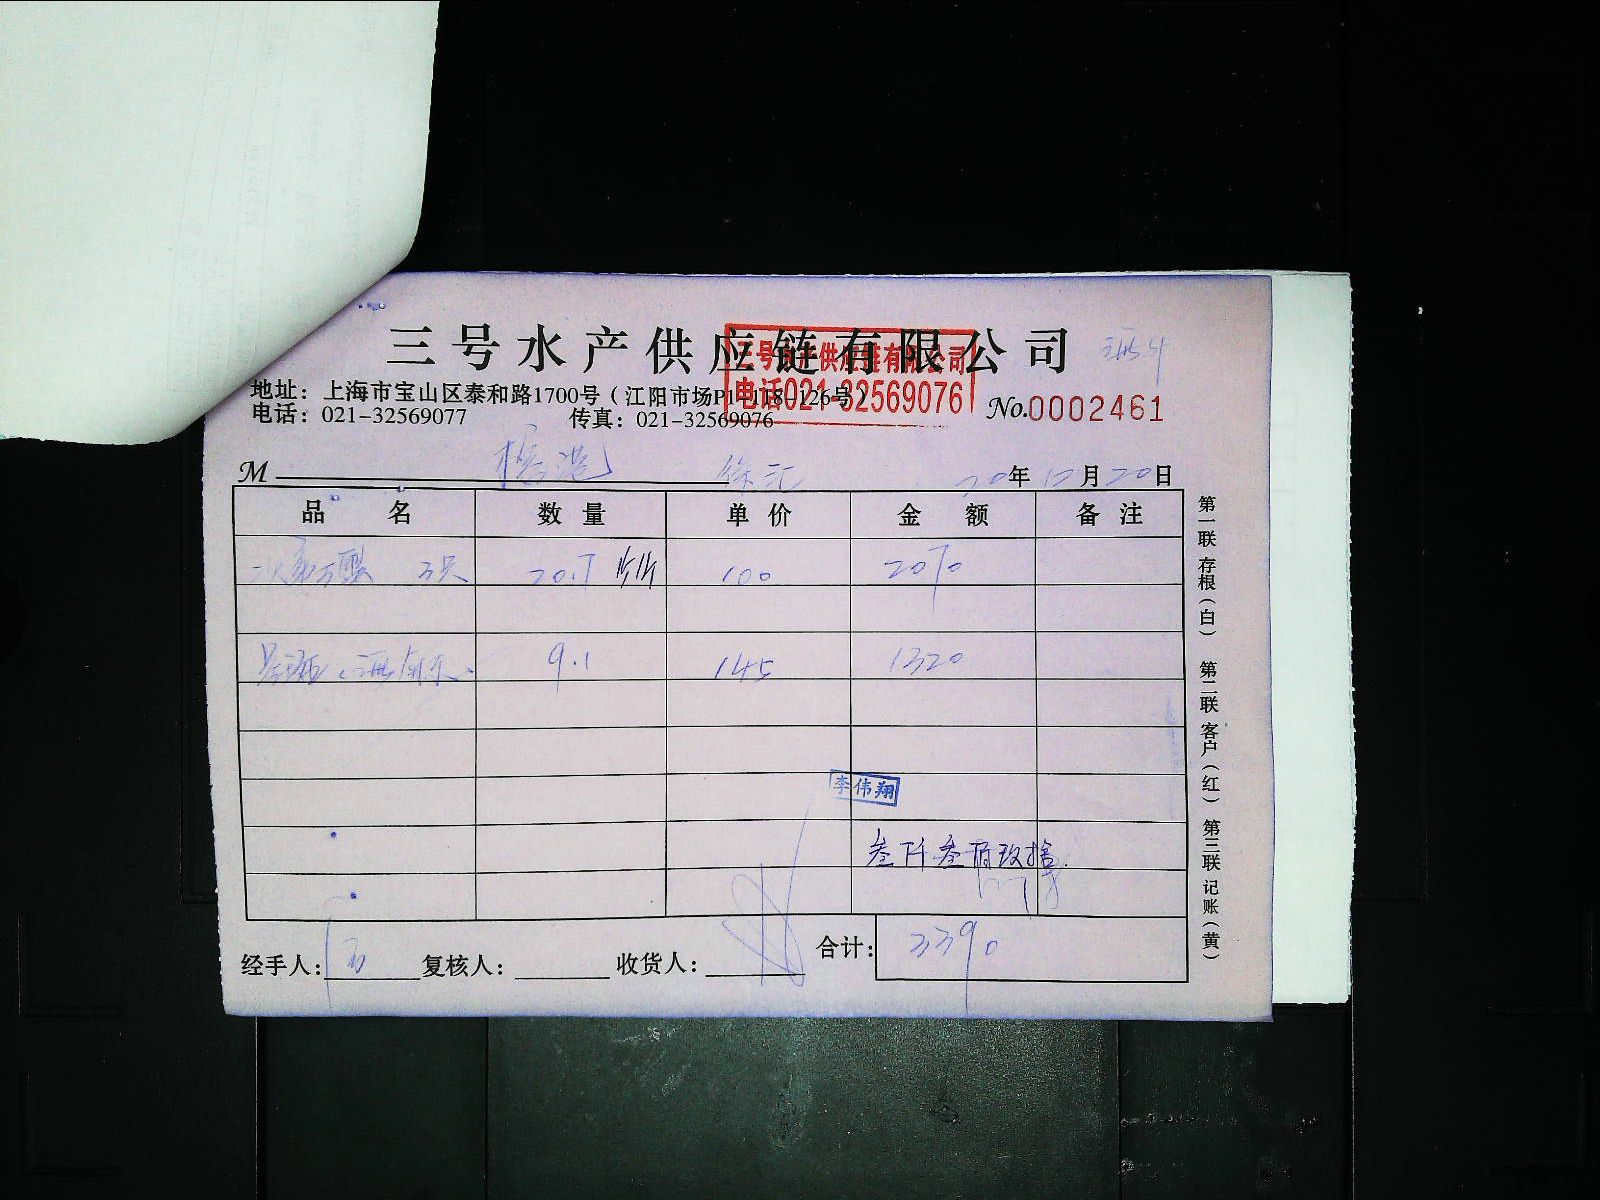 三号水产供应链有限公司
三号水产供应链有限公司
电话021-32569076
地址：上海市宝山区泰和路1700号（江阳市场P1-118-126号）
电话：021-32569077 传真：021-32569076
No.0002461
M 徐汇 20年12月20日
品名 数量 单价 金额 备注
20.7 100 2070
9.1 145 1320
李伟翔
叁仟叁佰玖拾
经手人： 复核人： 收货人： 合计： 3390
第一联 存根（白） 第二联 客户（红） 第三联 记账（黄）